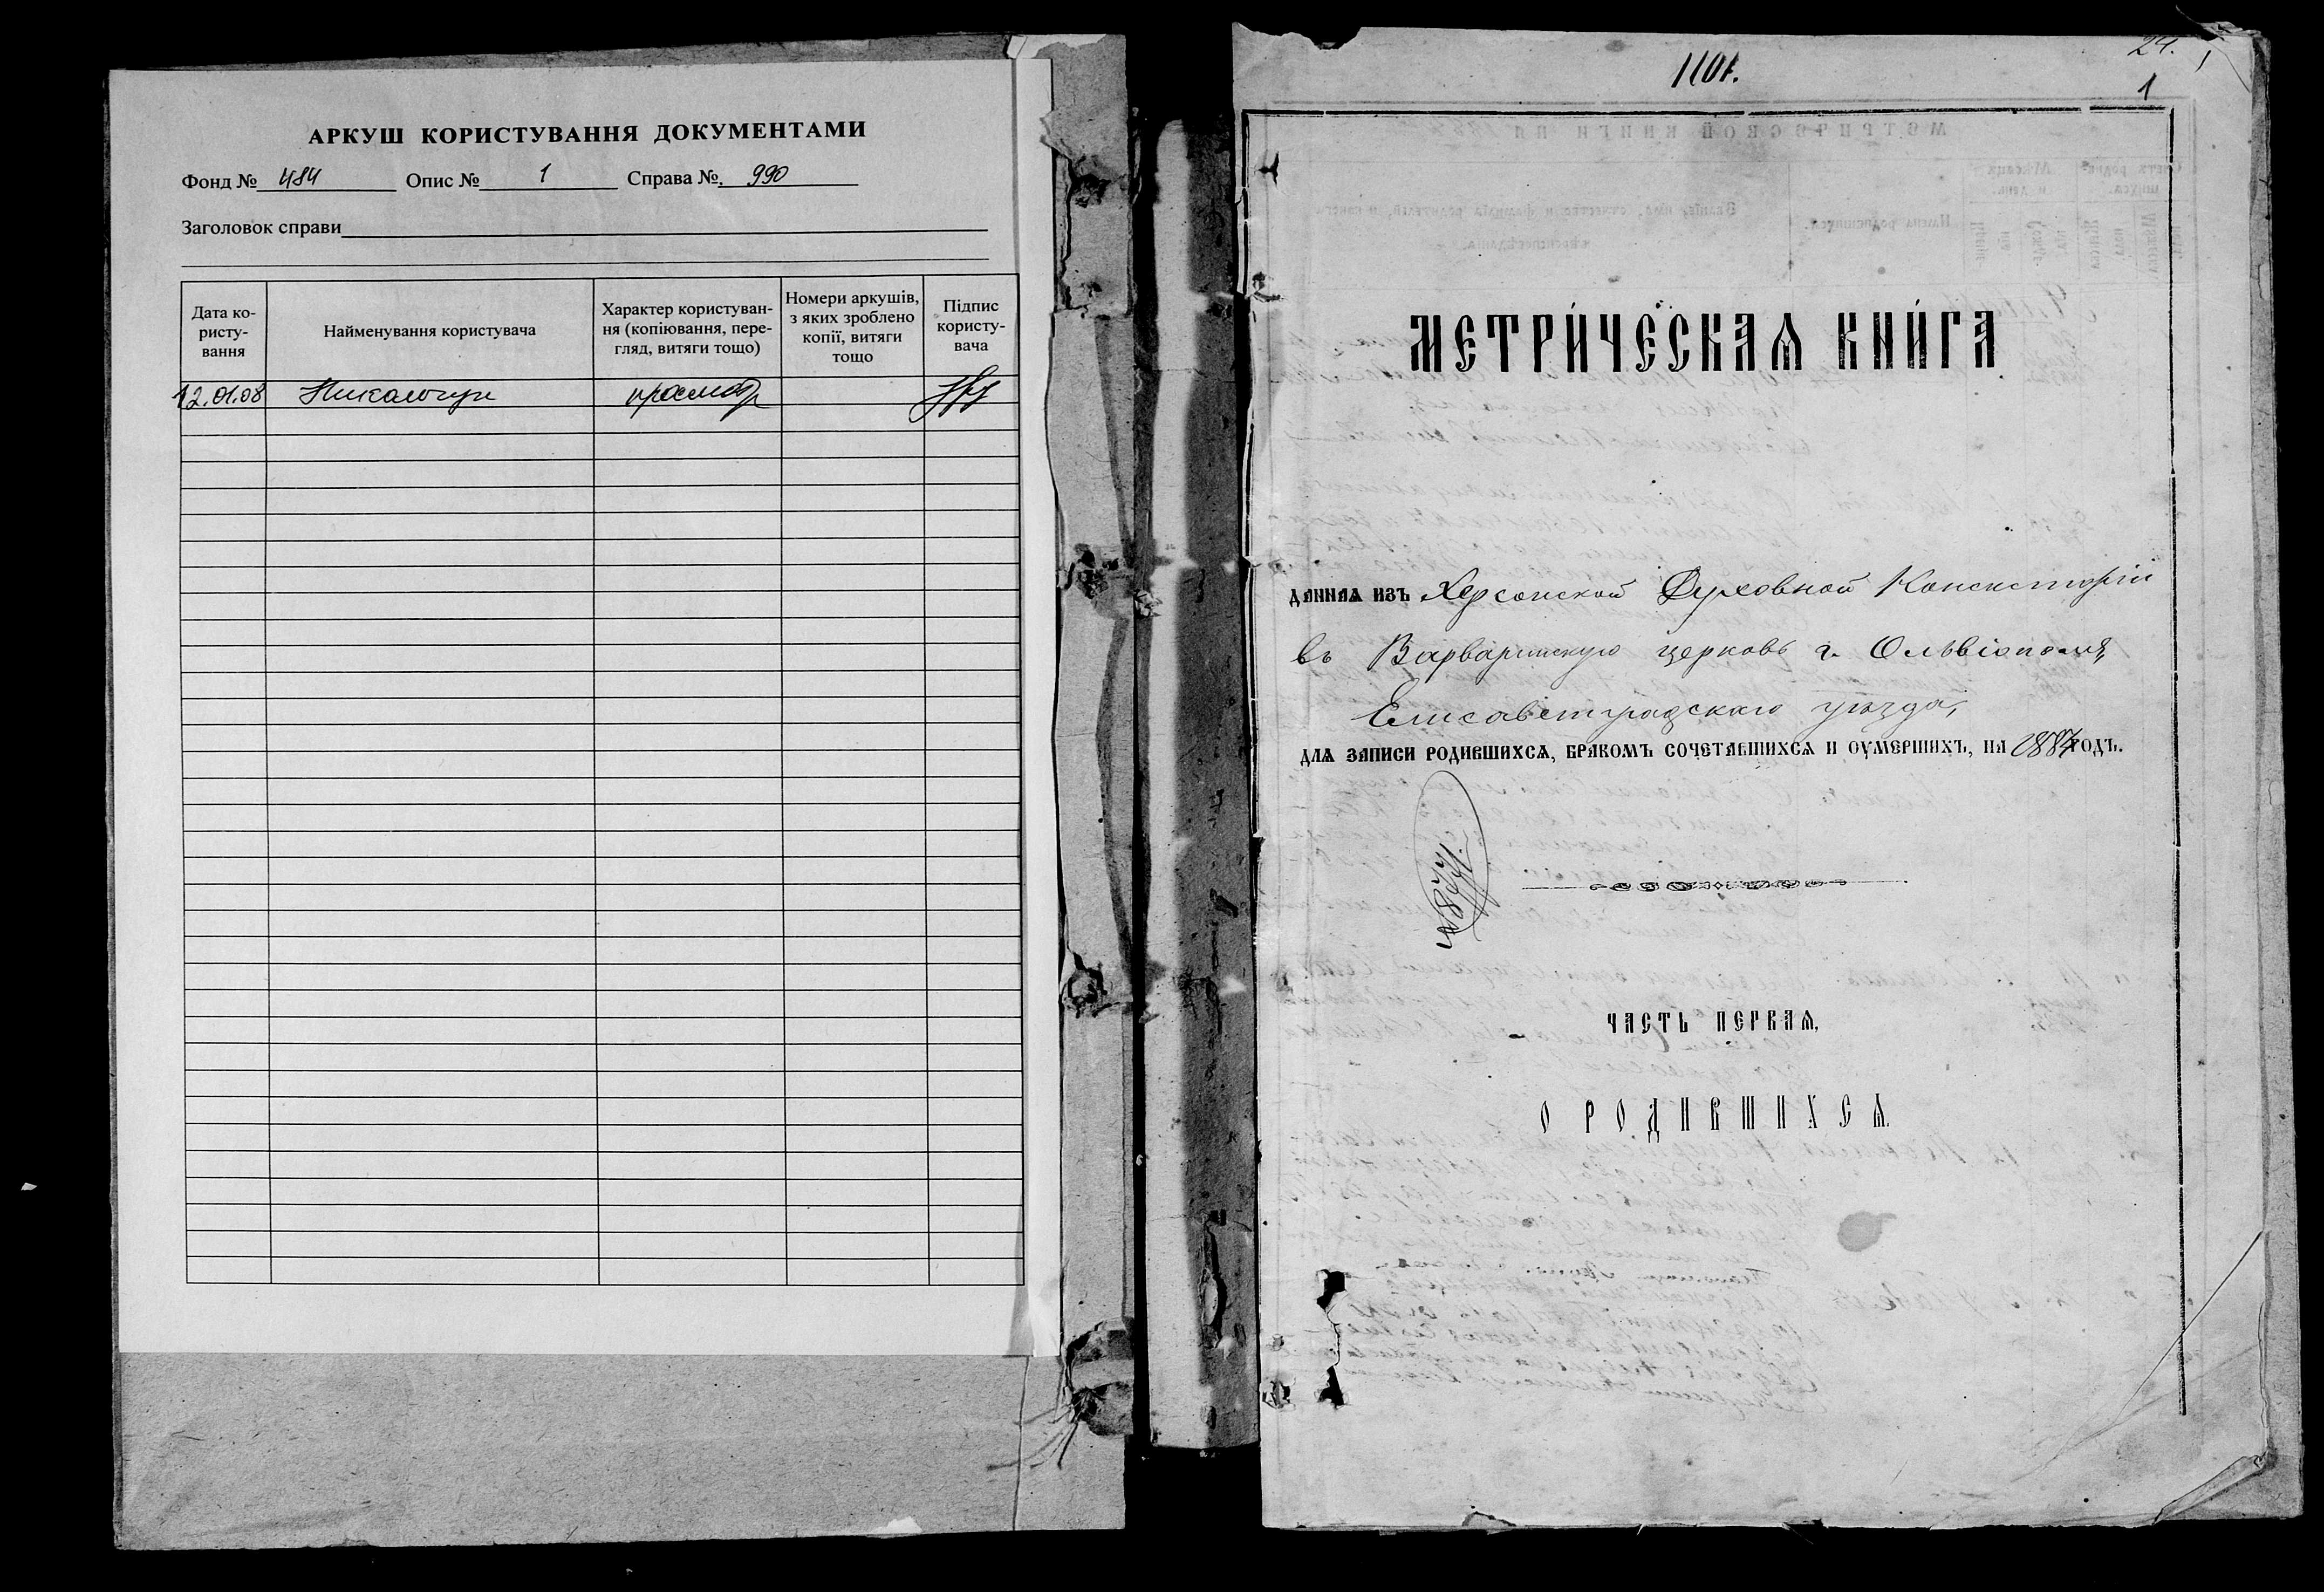 АРКУШ КОРИСТУВАННЯ ДОКУМЕНТАМИ
Фонд № 484 Опис № 1 Справа № 990
Заголовок справи
Дата ко-
ристу-
вання
Найменування користувача
Характер користуван-
ня (копіювання, пере-
гляд, витяги тощо)
Номери аркушів,
з яких зроблено
копії, витяги
тощо
Підпис
користу-
вача
12.01.08 просмотр
1101.
24.
1
МЕТРИ́ЧЕСКАѦ КНИ́ГА
даннаѧ изъ Херсонской Духовной Консисторіи
въ Варваринскую церковь г. Ольвіополя,
Елисаветградскаго уѣзда,
длѧ записи родившихсѧ, бракомъ сочетавшихсѧ и оумершихъ, на 1884 годъ.
ЧАСТЬ ПЕРВАѦ,
О РОДИВШИХСѦ